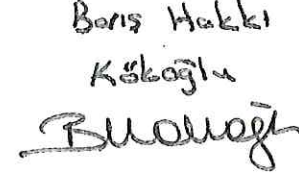 Barış Hakkı
Kökoğlu